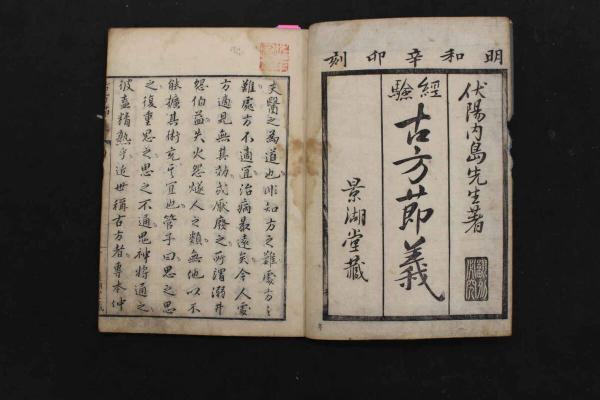 明和辛卯刻
伏陽内島先生著
經驗
古方節義
景湖堂藏
夫醫之為道也非知方之難處方之
難處方不適宜治病最遠矣今人處
方適見無其効或厭廢之所謂溺井
怨伯益失火怨燧人之類無他以不
能擴其術充其宜也管子曰思之思
之復重思之思之不通鬼神將通之
彼盡精熟乎近世稱古方者專本仲